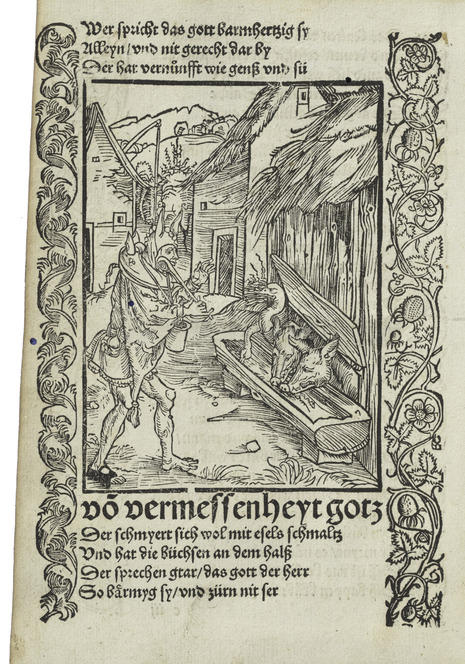 Wer spricht das gott barmhertzig sy
Alleyn/vnd nit gerecht dar by
Der hat vernũnfft wie genß vnd sü
võ vermessenheyt gotz
Der schmyert sich wol mit esels schmaltz
Vnd hat die büchsen an dem halß
Der sprechen gtar/das gott der herr
So bãrmyg sy/vnd zürn nit ser